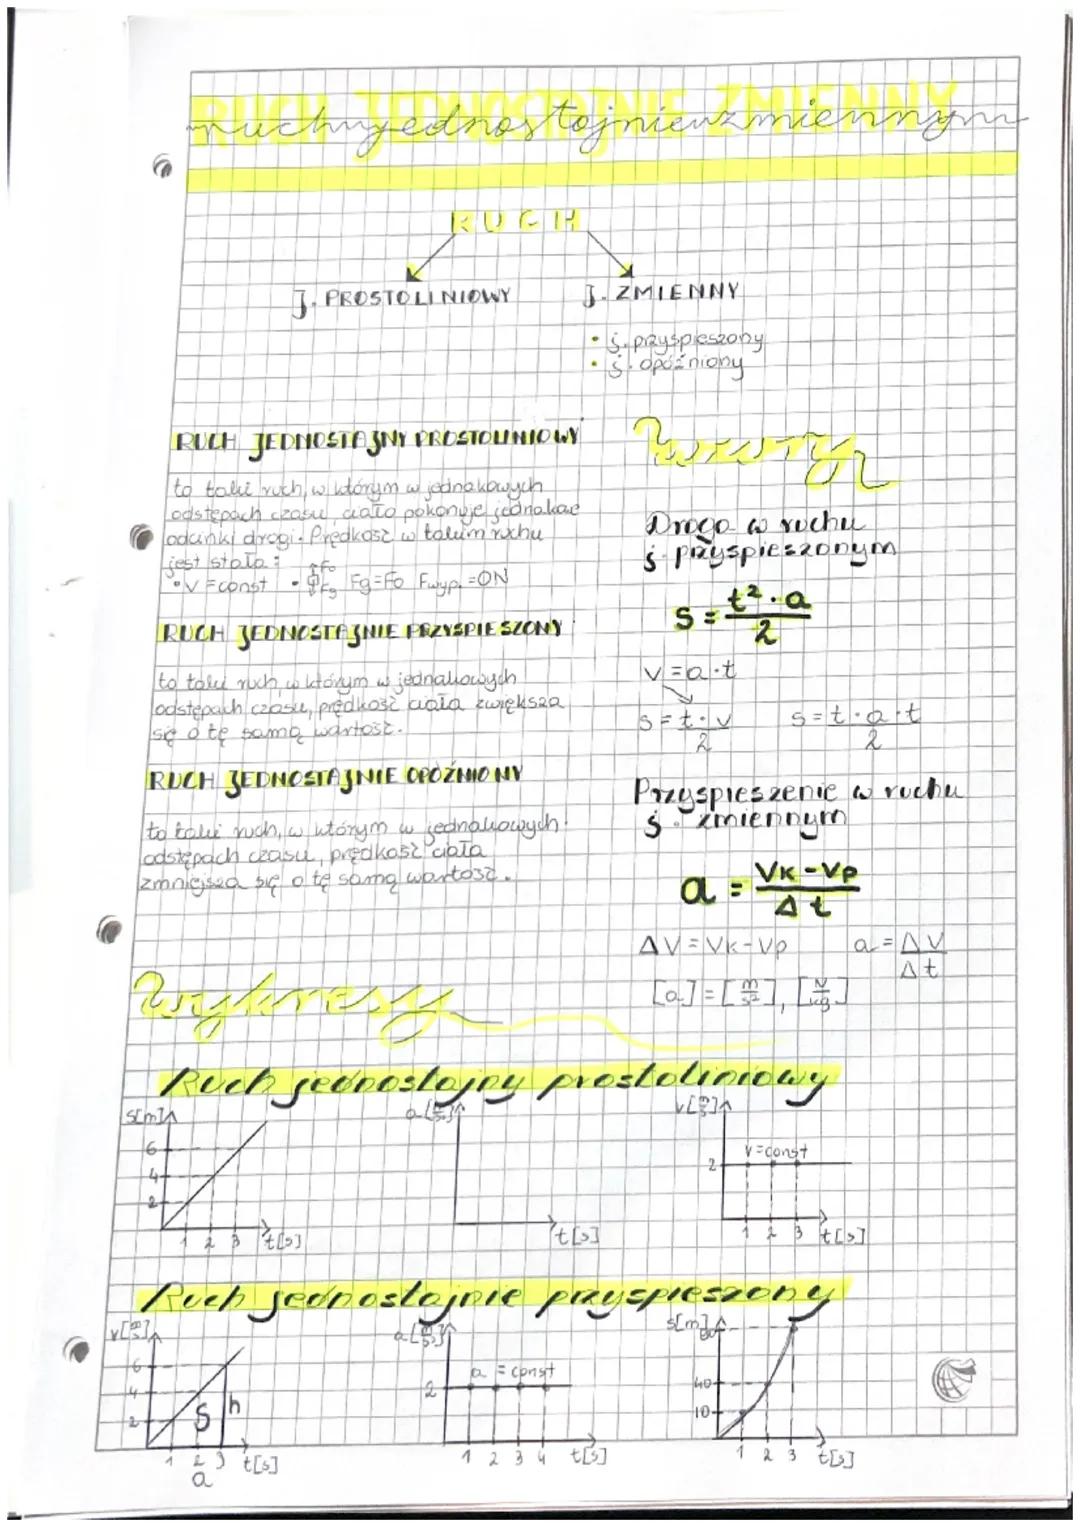 RUCH JEDNOSTAJNIE ZMIENNY
ruch jednostajnie zmienny
RUCH
J. PROSTOLINIOWY
J. ZMIENNY
• j. przyspieszony
• j. opóźniony
RUCH JEDNOSTAJNY PROSTOLINIOWY
to taki ruch, w którym w jednakowych
odstępach czasu ciało pokonuje jednakowe
odcinki drogi. Prędkość w takim ruchu
jest stała:
• V = const • Fo Fg Fg=Fo Fwyp. = 0N
RUCH JEDNOSTAJNIE PRZYSPIESZONY
to taki ruch, w którym w jednakowych
odstępach czasu, prędkość ciała zwiększa
się o tę samą wartość.
RUCH JEDNOSTAJNIE OPÓŹNIONY
to taki ruch, w którym w jednakowych
odstępach czasu, prędkość ciała
zmniejsza się o tę samą wartość.
Wzory
Droga w ruchu
j. przyspieszonym
S = t² · a / 2
V = a · t
S = t · v / 2
S = t · a · t / 2
Przyspieszenie w ruchu
j. zmiennym
a = Vk - Vp / Δt
ΔV = Vk - Vp
a = ΔV / Δt
[a] = [m/s²], [N/kg]
Wykresy
Ruch jednostajny prostoliniowy
S[m]
6
4
2
1 2 3 t[s]
t[s]
v[m/s]
v = const
2
1 2 3 t[s]
Ruch jednostajnie przyspieszony
v[m/s]
6
4
2
S
h
1 2 3 t[s]
a
a = const
2
1 2 3 4 t[s]
S[m]
40
10
1 2 3 t[s]